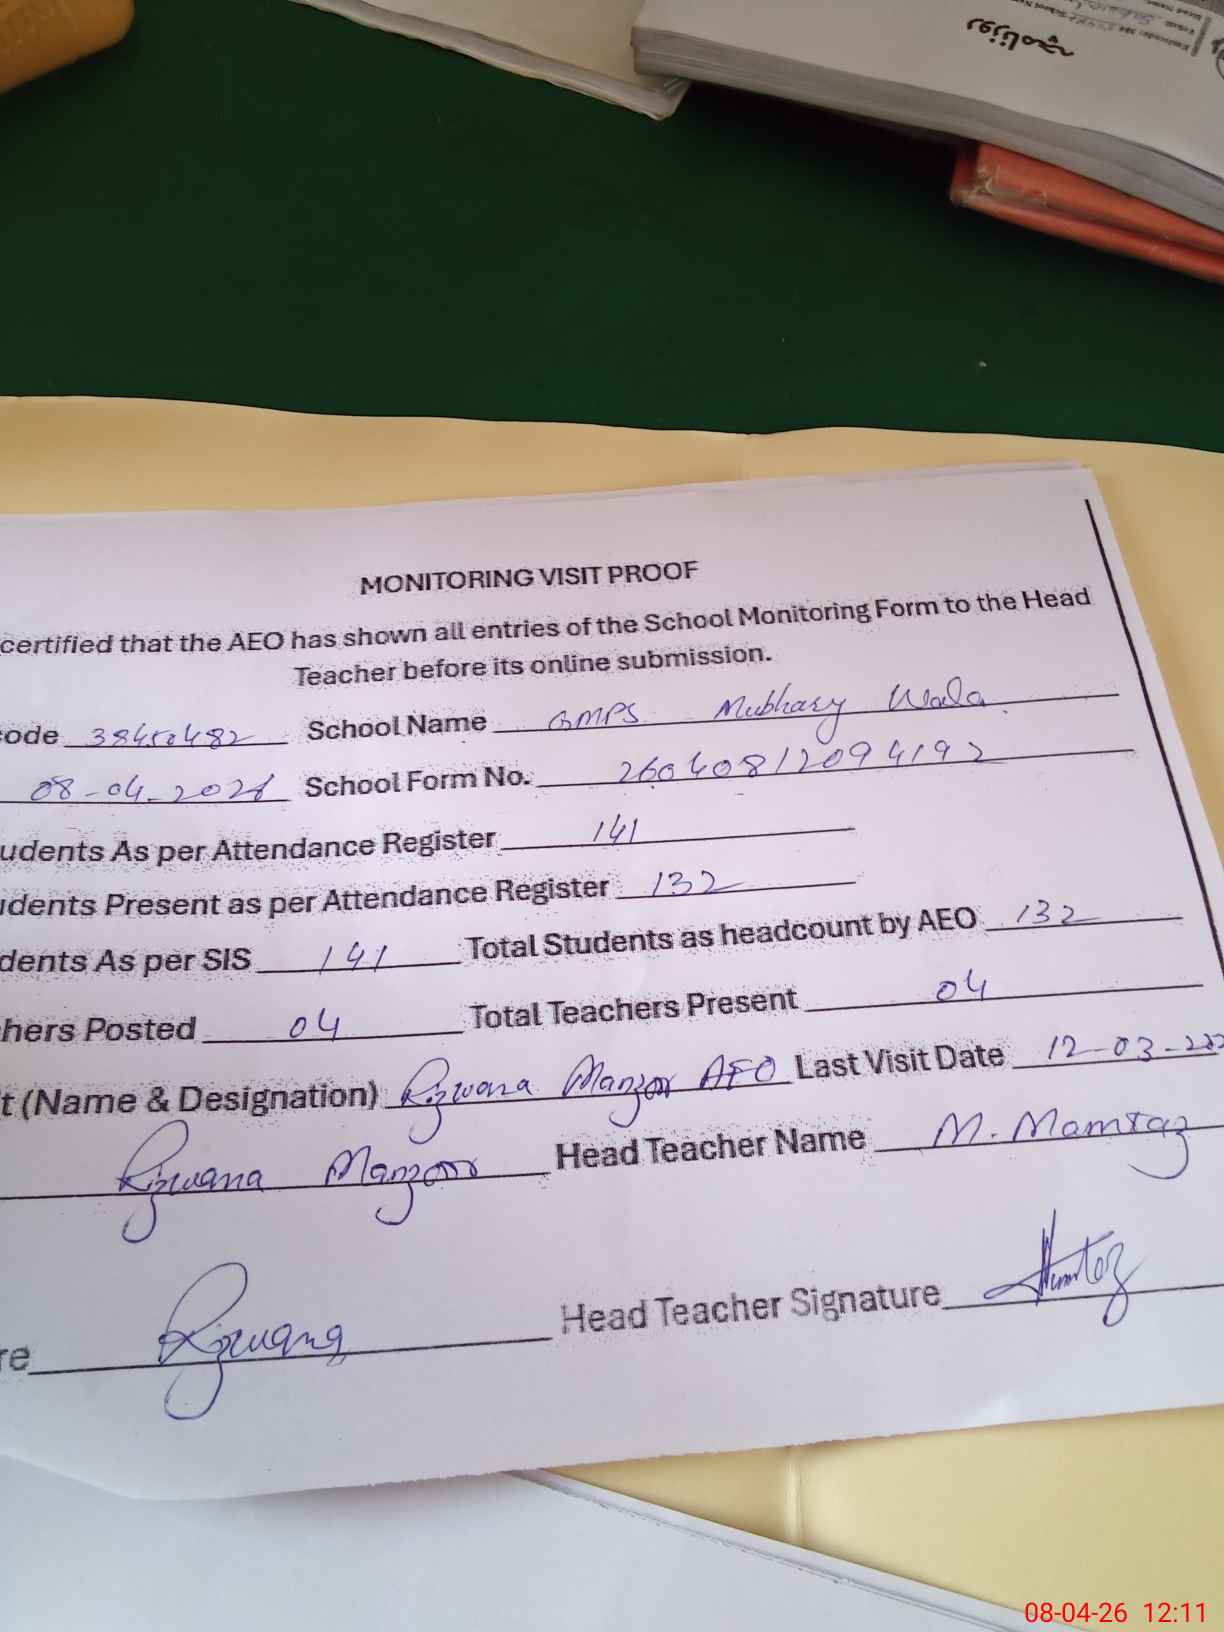 روزنامچہ
MONITORING VISIT PROOF
certified that the AEO has shown all entries of the School Monitoring Form to the Head
Teacher before its online submission.
ode 38450482 School Name GMPS Mubhary Wala
08-04-2026 School Form No. 26040812094192
udents As per Attendance Register 141
idents Present as per Attendance Register 132
dents As per SIS 141 Total Students as headcount by AEO 132
hers Posted 04 Total Teachers Present 04
t (Name & Designation) Rizwana Manzoor AEO Last Visit Date 12-03-202
Rizwana Manzoor Head Teacher Name M. Mamtaz
re Rizwana Head Teacher Signature Mumtaz
08-04-26 12:11